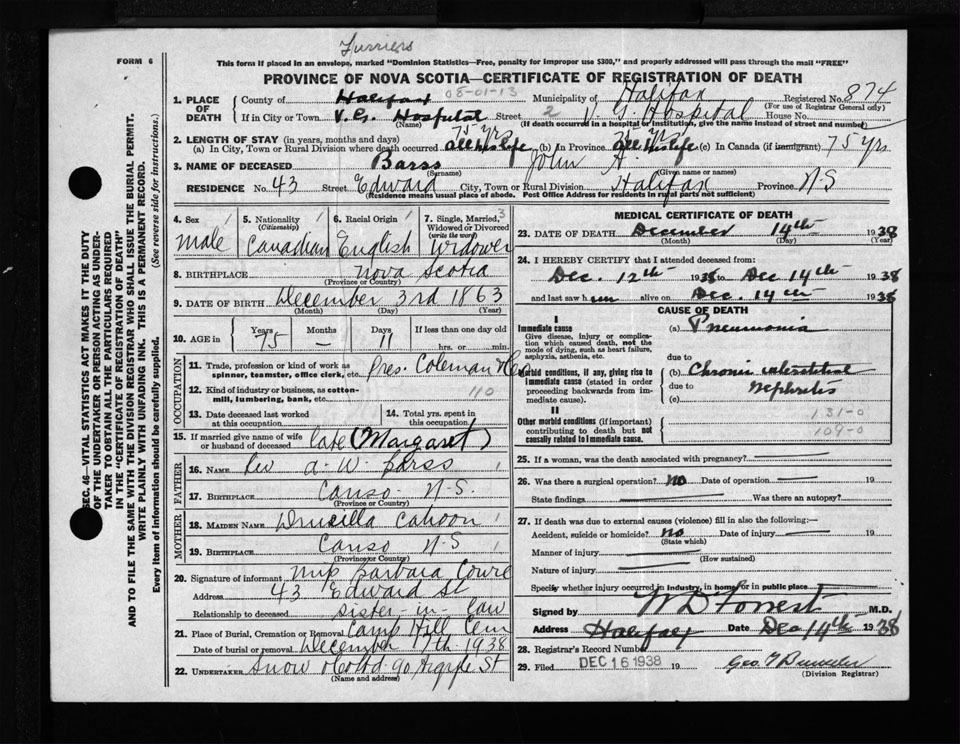 Furriers
FORM 6
This form if placed in an envelope, marked "Dominion Statistics—Free, penalty for improper use $300," and properly addressed will pass through the mail "FREE"
PROVINCE OF NOVA SCOTIA—CERTIFICATE OF REGISTRATION OF DEATH
08-01-13
1. PLACE OF DEATH
County of Halifax Municipality of Halifax Registered No. 874
(For use of Registrar General only)
If in City or Town V.G. Hospital Street 2 V. G Hospital House No.
(Name) (If death occurred in a hospital or institution, give the name instead of street and number)
2. LENGTH OF STAY (in years, months and days)
75 yrs 75 yrs
(a) In City, Town or Rural Division where death occurred all his life (b) In Province all his life (c) In Canada (if immigrant) 75 yrs.
3. NAME OF DECEASED Barss John A.
(Surname) (Given name or names)
RESIDENCE No. 43 Street Edward City, Town or Rural Division Halifax Province N-S
(Residence means usual place of abode. Post Office Address for residents in rural parts not sufficient)
4. Sex 1 male
5. Nationality 1 (Citizenship) Canadian
6. Racial Origin 1 English
7. Single, Married, Widowed or Divorced (write the word) 3 Widower
8. BIRTHPLACE Nova Scotia
(Province or Country)
9. DATE OF BIRTH December 3rd 1863
(Month) (Day) (Year)
10. AGE in Years 75 Months — Days 11 If less than one day old hrs. or min.
OCCUPATION
11. Trade, profession or kind of work as spinner, teamster, office clerk, etc. Pres. Coleman & Co
12. Kind of industry or business, as cotton-mill, lumbering, bank, etc. 40
13. Date deceased last worked at this occupation
14. Total yrs. spent in this occupation
15. If married give name of wife or husband of deceased late (Margaret)
FATHER
16. NAME Rev A. W. Barss 1
17. BIRTHPLACE Canso - N-S.
MOTHER
18. MAIDEN NAME Drucilla Cahoon 1
19. BIRTHPLACE Canso N-S 1
(Province or Country)
20. Signature of informant Barbara
Address 43 Edward St
Relationship to deceased sister-in-law
21. Place of Burial, Cremation or Removal Camp Hill Cem
Date of burial or removal December 17th 1938
22. UNDERTAKER Snow & Co Ltd 90 Argyle St
(Name and address)
MEDICAL CERTIFICATE OF DEATH
23. DATE OF DEATH December 14th 1938
(Month) (Day) (Year)
24. I HEREBY CERTIFY that I attended deceased from:
Dec. 12th 1938 to Dec 14th 1938
and last saw him alive on Dec. 14th 1938
CAUSE OF DEATH
I
Immediate cause
Give disease, injury or complication which caused death, not the mode of dying, such as heart failure, asphyxia, asthenia, etc.
(a) Pneumonia
due to
Morbid conditions, if any, giving rise to immediate cause (stated in order proceeding backwards from immediate cause).
(b) Chronic interstitial
due to Nephritis
(c)
II
Other morbid conditions (if important) contributing to death but not causally related to immediate cause.
131-0
109-0
25. If a woman, was the death associated with pregnancy?
26. Was there a surgical operation? no Date of operation — 19
State findings Was there an autopsy?
27. If death was due to external causes (violence) fill in also the following:—
Accident, suicide or homicide? no Date of injury — 19
(State which)
Manner of injury
(How sustained)
Nature of injury
Specify whether injury occurred in industry, in home or in public place
Signed by W D Forrest M.D.
Address Halifax Date Dec 14th 1938
28. Registrar's Record Number
29. Filed DEC 16 1938 19
(Division Registrar)
SEC. 46—VITAL STATISTICS ACT MAKES IT THE DUTY
OF THE UNDERTAKER OR PERSON ACTING AS UNDERTAKER TO OBTAIN ALL THE PARTICULARS REQUIRED
IN THE "CERTIFICATE OF REGISTRATION OF DEATH"
AND TO FILE THE SAME WITH THE DIVISION REGISTRAR WHO SHALL ISSUE THE BURIAL PERMIT.
WRITE PLAINLY WITH UNFADING INK. THIS IS A PERMANENT RECORD.
Every item of Information should be carefully supplied. (See reverse side for instructions.)